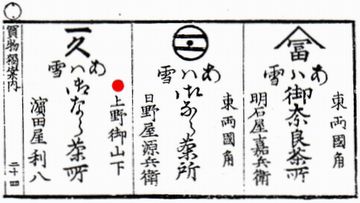 冨
東両國角
あハ雪
御奈良茶所
明石屋嘉兵衛
東両國角
あハ雪
御なら茶所
日野屋源兵衛
一久
上野御山下
あハ雪
御なら茶所
濱田屋利八
買物獨案内
二十四